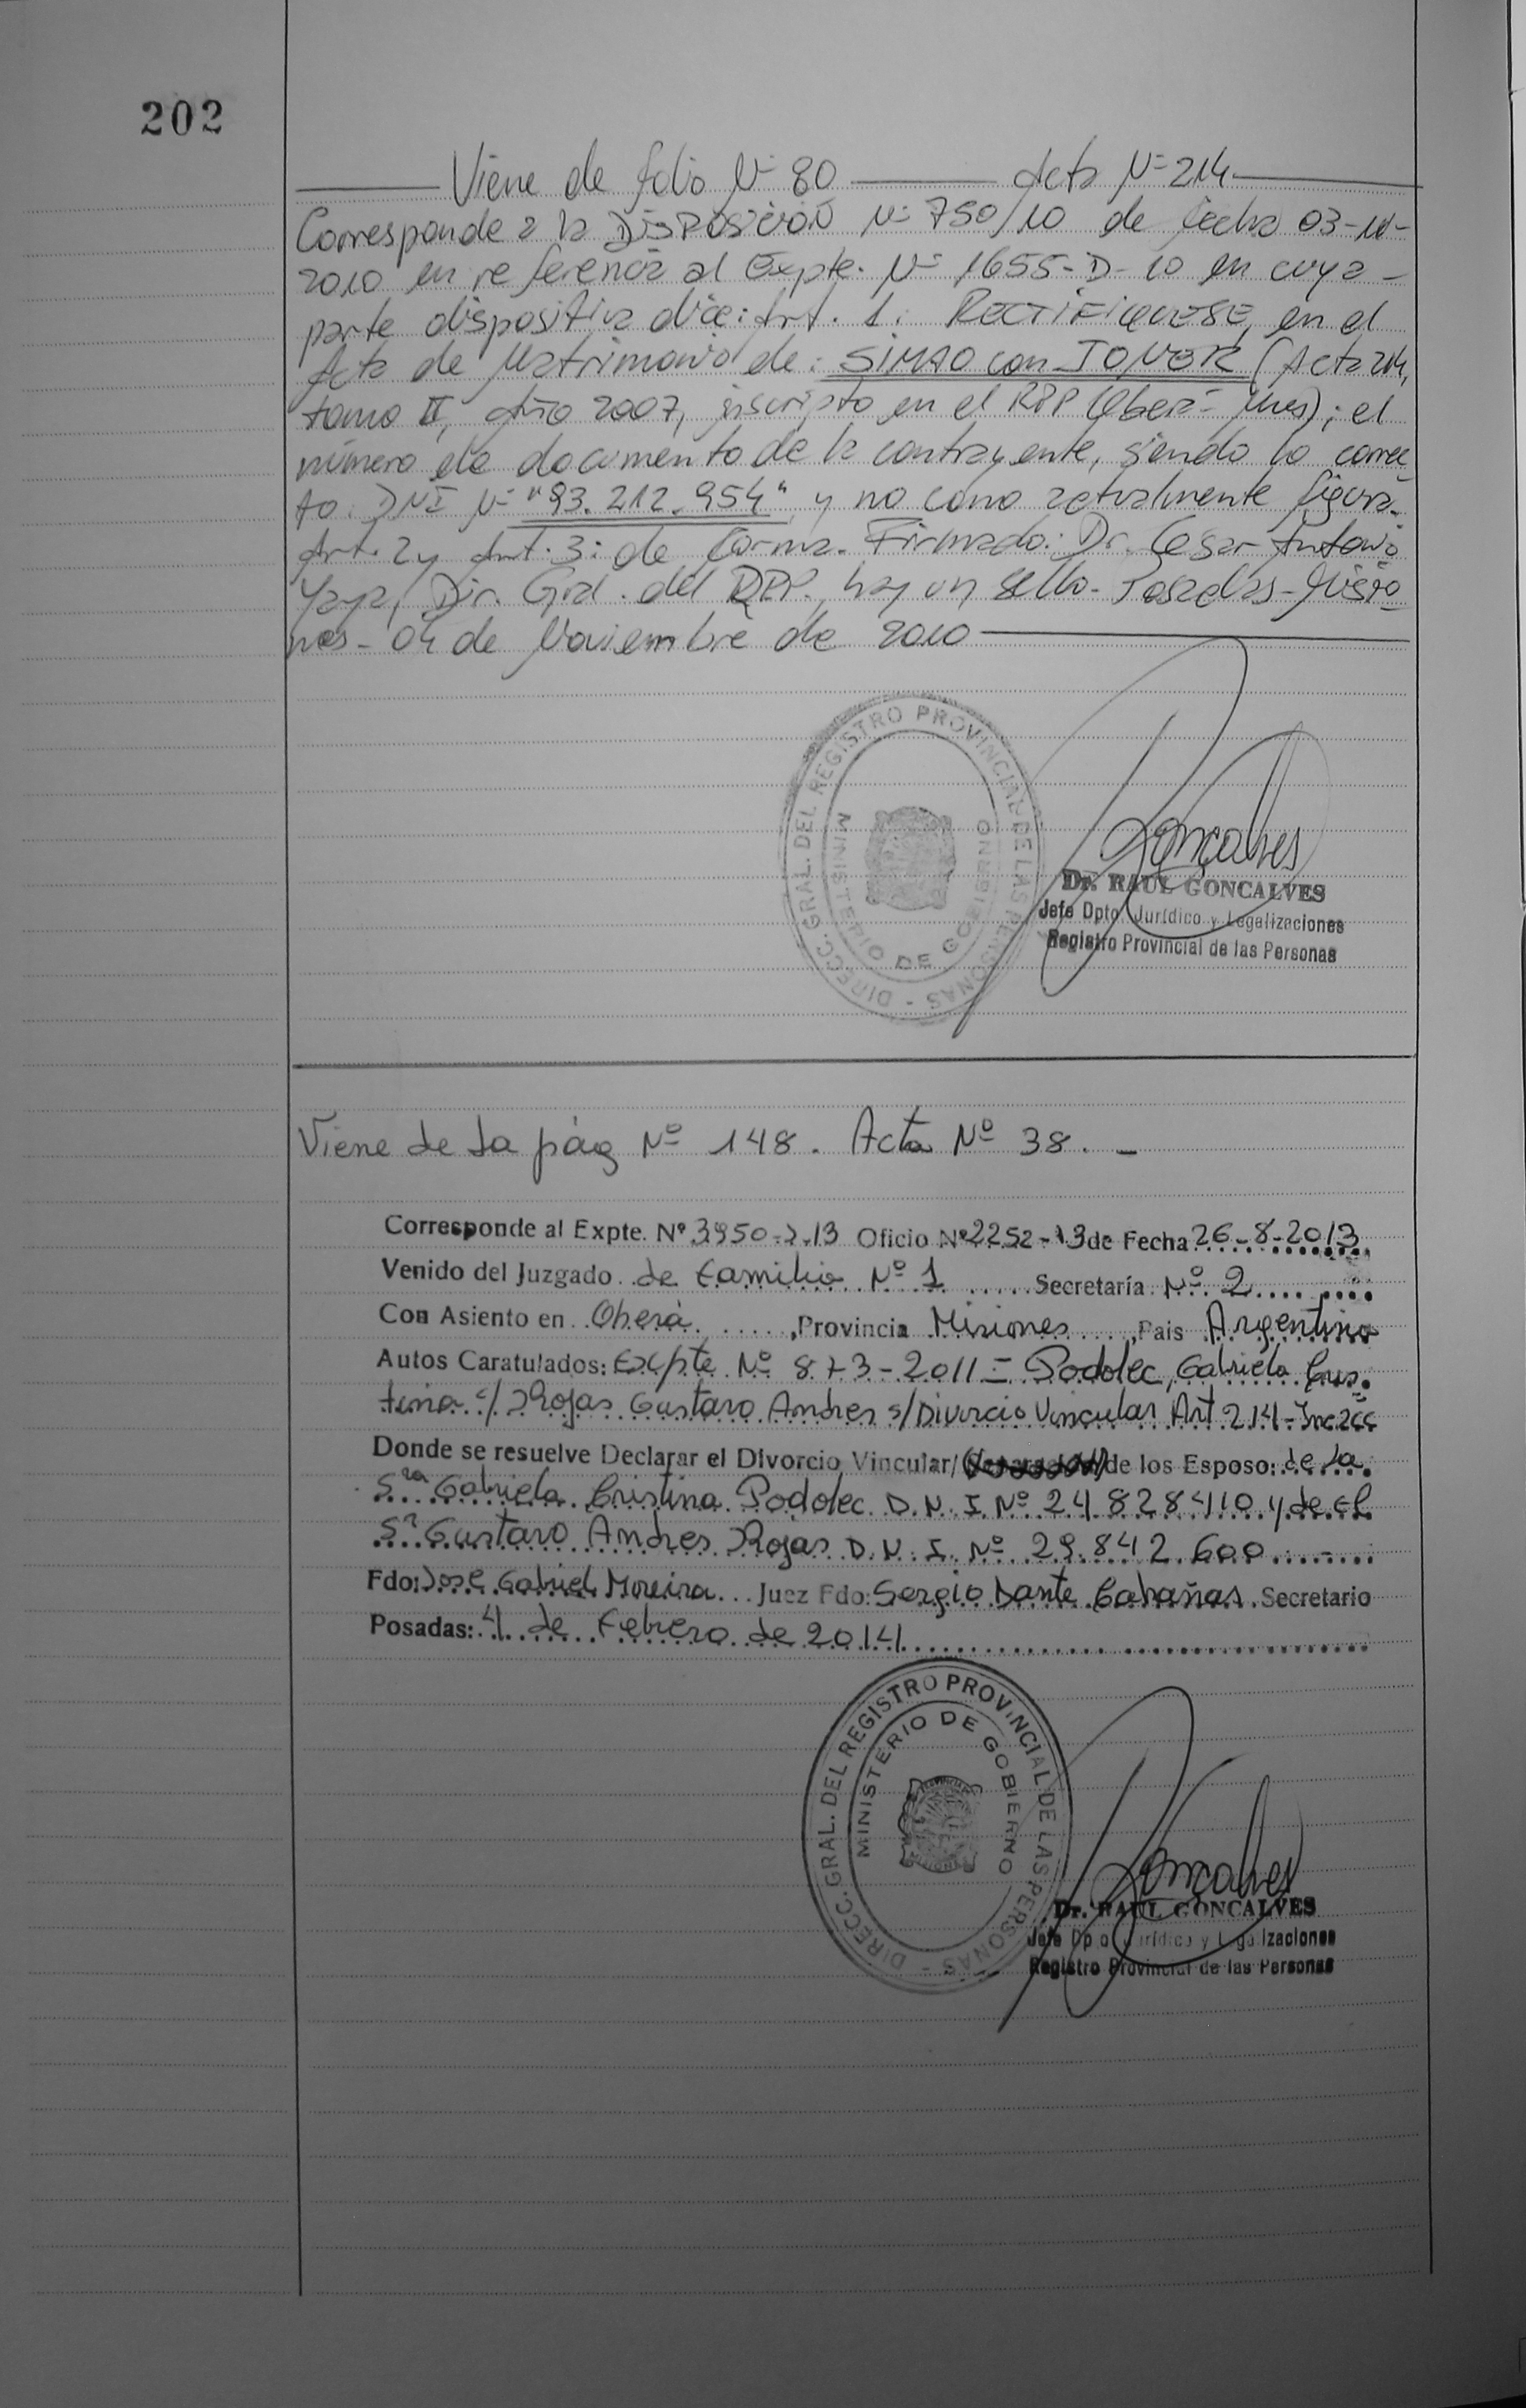 202
Viene de folio Nº 80 Acta Nº 214
Corresponde a la DISPOSICION Nº 750/10 de fecha 03-11-
2010 en referencia al Expte. Nº 1655-D-10 en cuya -
parte dispositiva dice: Art. 1: RECTIFIQUESE, en el
Acta de Matrimonio de: SIMAO con (Acta 214,
tomo II, Año 2007, inscripto en el RPP Oberá - Mnes); el
número de documento de la contrayente, siendo lo correc
to: DNI Nº "93.212.954" y no como actualmente figura.
Art. 2 y Art. 3: de forma. Firmado: Dr. Cesar Antonio
Dir. Gral. del RPP. hay un sello - Posadas - Misio
nes - 04 de Noviembre de 2010
DIRECC. GRAL. DEL REGISTRO PROVINCIAL DE LAS PERSONAS -
MINISTERIO DE GOBIERNO
Goncalves
Dr. RAUL GONCALVES
Jefe Dpto. Jurídico y Legalizaciones
Registro Provincial de las Personas
Viene de la pág Nº 148. Acta Nº 38. -
Corresponde al Expte. Nº 3950-2-13 Oficio Nº 2252-13 de Fecha 26-8-2013
Venido del Juzgado de Familia Nº 1 Secretaría Nº 2
Con Asiento en Oberá, Provincia Misiones, Pais Argentina
Autos Caratulados: Expte Nº 873-2011 - Podolec, Gabriela Cris-
tina c/ Rojas Gustavo Andres s/ Divorcio Vincular Art 214 - Inc 2º
Donde se resuelve Declarar el Divorcio Vincular/ de los Esposo: de la
Sra Gabriela Cristina Podolec D.N.I Nº 24828410 y de el
Sr Gustavo Andres Rojas D.N.I. Nº 29.842.600
Fdo: Jose Gabriel Moreira Juez Fdo: Sergio Dante Cabañas Secretario
Posadas: 4 de Febrero de 2014
DIRECC. GRAL. DEL REGISTRO PROVINCIAL DE LAS PERSONAS -
MINISTERIO DE GOBIERNO
Goncalves
Dr. RAUL GONCALVES
Jefe Dpto Jurídico y Legalizaciones
Registro Provincial de las Personas